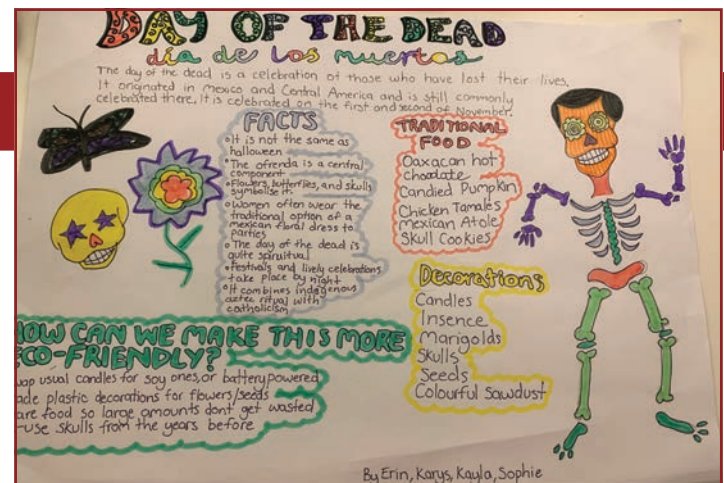 DAY OF THE DEAD
día de los muertos
The day of the dead is a celebration of those who have lost their lives.
It originated in mexico and Central America and is still commonly
celebrated there. It is celebrated on the first and second of November.
FACTS
It is not the same as
halloween
The ofrenda is a central
component
Flowers, butterflies, and skulls
symbolise it.
Women often wear the
traditional option of a
mexican floral dress to
parties
The day of the dead is
quite spiruitual
Festivals and lively celebrations
take place by night
It combines indigenous
aztec ritual with
catholicism
TRADITIONAL
FOOD
Oaxacan hot
chocolate
Candied Pumpkin
Chicken Tamales
mexican Atole
Skull Cookies
Decorations
Candles
Insence
Marigolds
Skulls
Seeds
Colourful Sawdust
HOW CAN WE MAKE THIS MORE
ECO-FRIENDLY?
usual candles for soy ones, or battery powered
plastic decorations for flowers/seeds
food so large amounts dont get wasted
-use skulls from the years before
By Erin, Karys, Kayla, Sophie